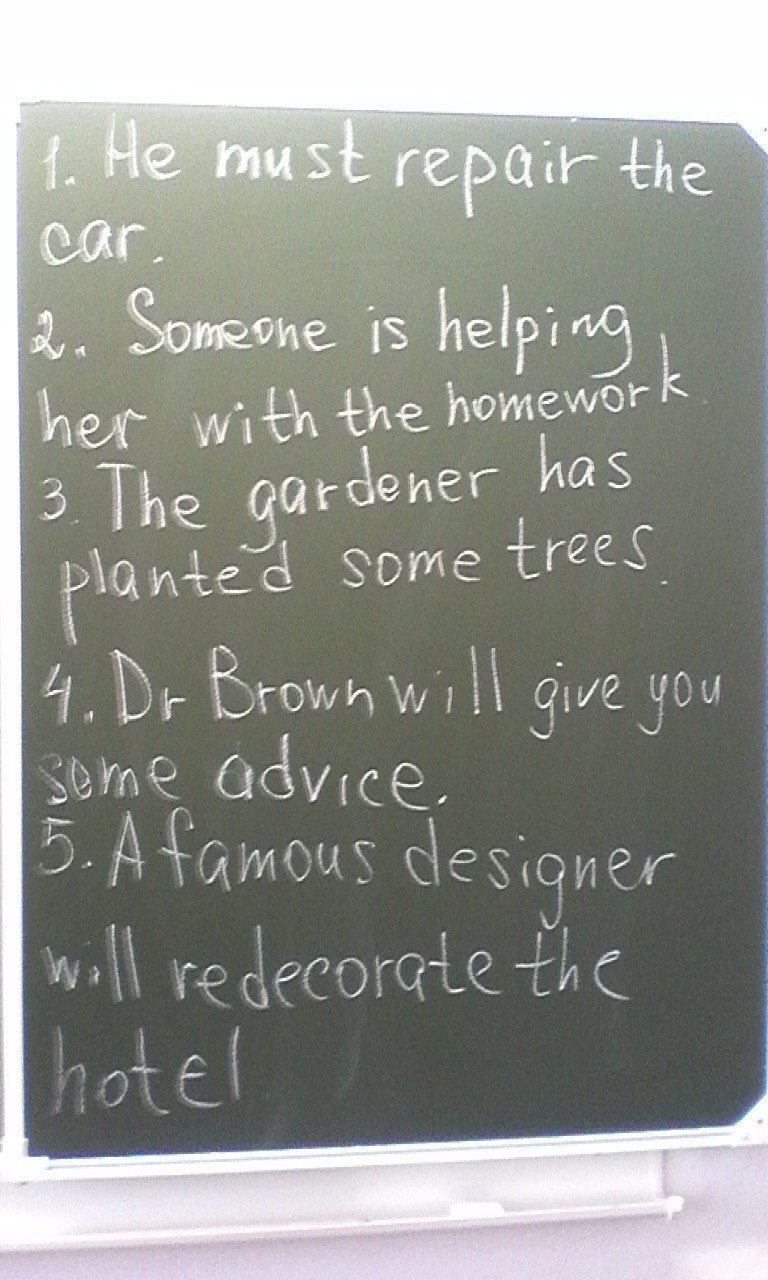 1. He must repair the
car.
2. Someone is helping
her with the homework
3. The gardener has
planted some trees.
4. Dr Brown will give you
some advice.
5. A famous designer
will redecorate the
hotel